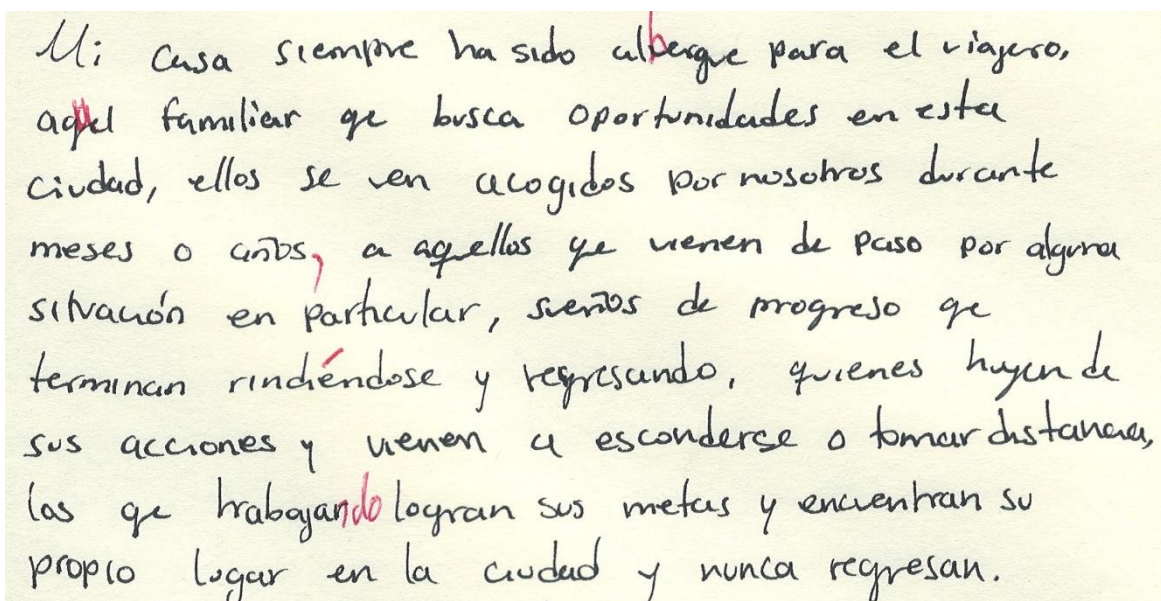 Mi casa siempre ha sido albergue para el viajero,
aquel familiar qe busca oportunidades en esta
ciudad, ellos se ven acogidos por nosotros durante
meses o años, a aqellos qe vienen de paso por alguna
situación en particular, sueños de progreso qe
terminan rindiéndose y regresando, quienes huyen de
sus acciones y vienen a esconderse o tomar distancia,
los qe trabajando logran sus metas y encuentran su
propio lugar en la ciudad y nunca regresan.